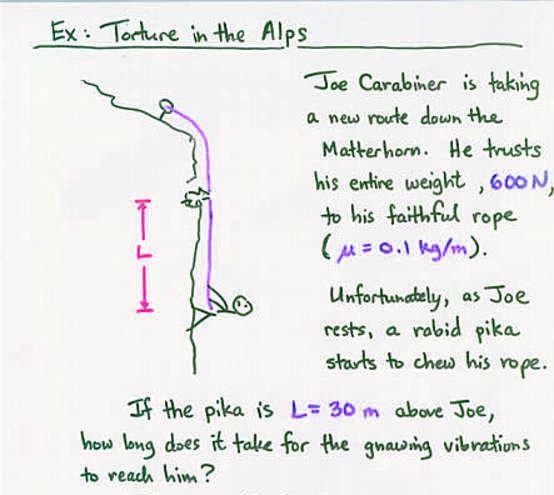 Ex: Torture in the Alps
Joe Carabiner is taking
a new route down the
Matterhorn. He trusts
his entire weight, 600 N,
to his faithful rope
(μ = 0.1 kg/m).
L
Unfortunately, as Joe
rests, a rabid pika
starts to chew his rope.
If the pika is L= 30 m above Joe,
how long does it take for the gnawing vibrations
to reach him?